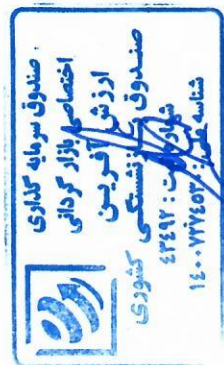 صندوق سرمایه گذاری
اختصاصی بازار گردانی
ارزش آفرین
صندوق بازنشستگی کشوری
شماره ثبت: ۴۳۴۹۲
شناسه ملی: ۱۴۰۰۷۷۲۷۴۵۳